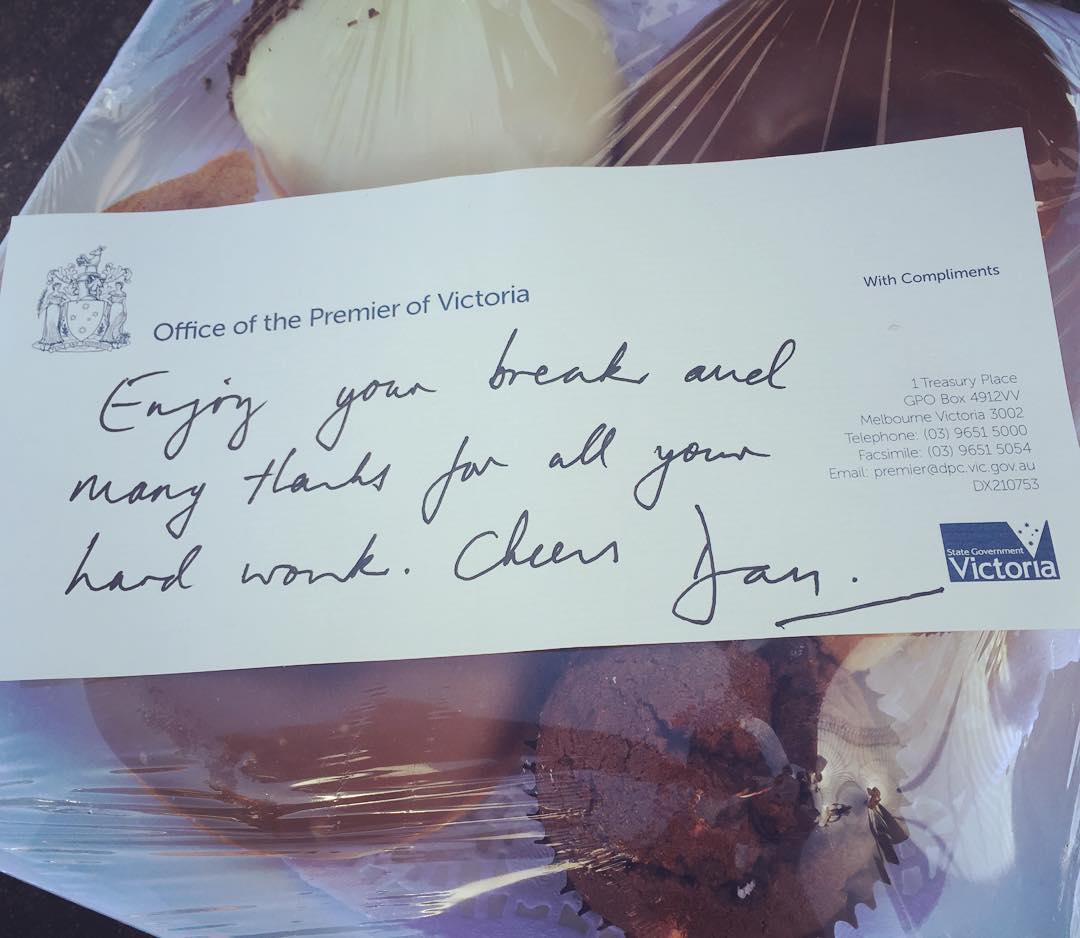 Office of the Premier of Victoria
With Compliments
Enjoy your break and
many thanks for all your
hard work. Cheers Dan.
1 Treasury Place
GPO Box 4912VV
Melbourne Victoria 3002
Telephone: (03) 9651 5000
Facsimile: (03) 9651 5054
Email: premier@dpc.vic.gov.au
DX210753
State Government
Victoria